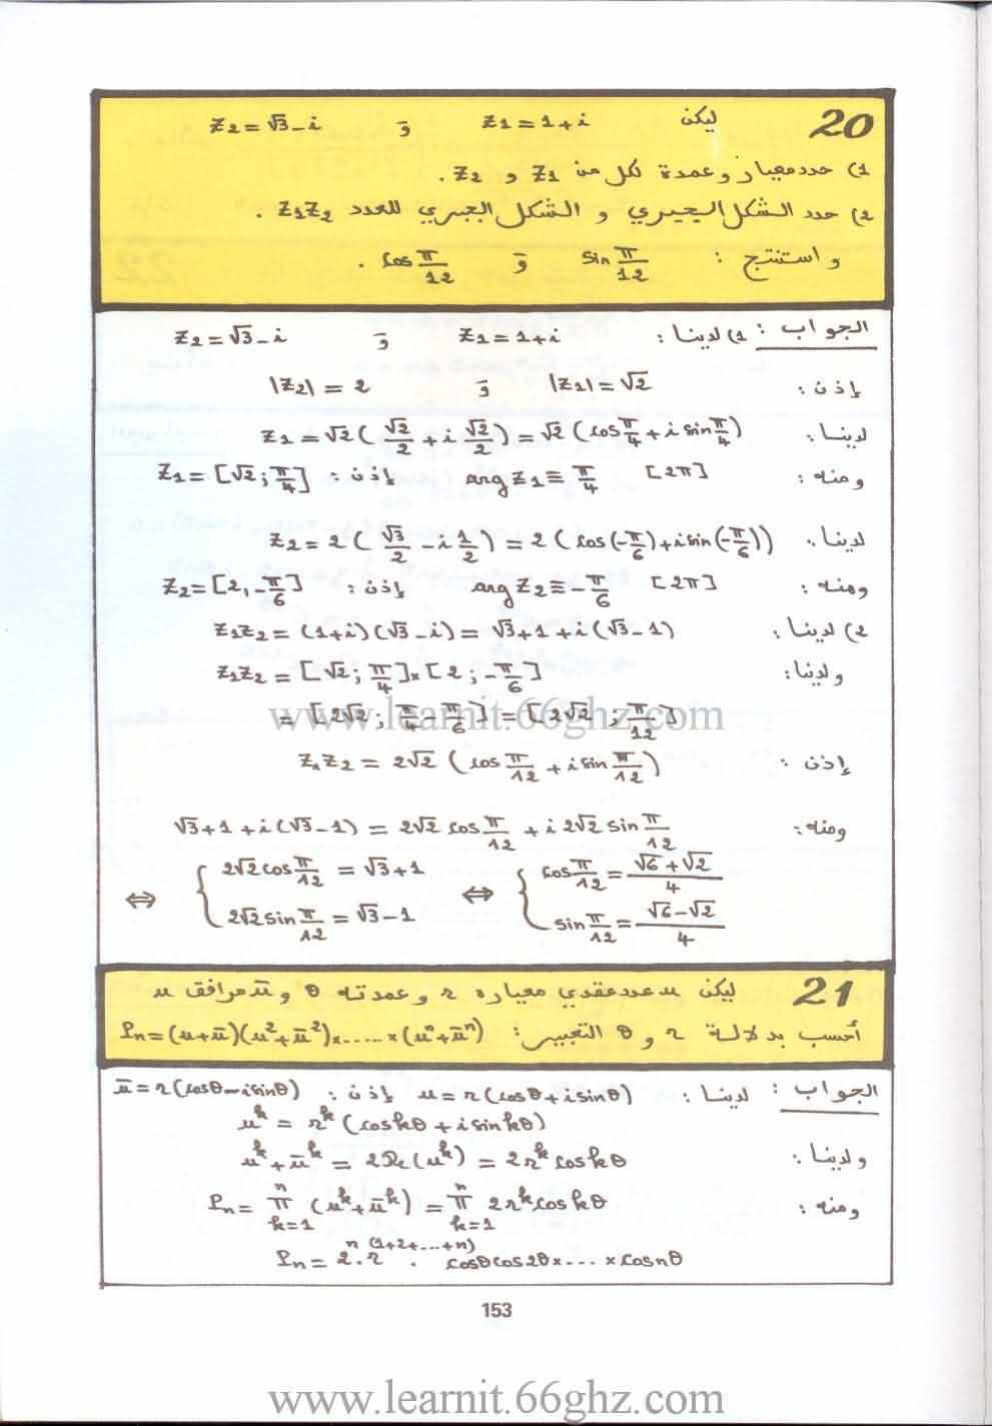 20 ليكن z₁=1+i و z₂=√3-i
1) حدد معيار وعمدة لكل من z₁ و z₂.
2) حدد الشكل الجبري و الشكل الجبري للعدد z₁z₂.
واستنتج : sin π/12 و cos π/12 .
الجواب : 1) لدينا : z₁=1+i و z₂=√3-i
إذن : |z₁|=√2 و |z₂|=2
لدينا : z₁=√2(√2/2+i√2/2)=√2(cos π/4+i sin π/4)
ومنه : arg z₁≡π/4 [2π] إذن : z₁=[√2;π/4]
لدينا : z₂=2(√3/2-i1/2)=2(cos(-π/6)+i sin(-π/6))
ومنه : arg z₂≡-π/6 [2π] إذن : z₂=[2,-π/6]
2) لدينا : z₁z₂=(1+i)(√3-i)=√3+1+i(√3-1)
ولدينا : z₁z₂=[√2;π/4]×[2;-π/6]
=[2√2;π/4-π/6]=[2√2;π/12]
www.learnit.66ghz.com
إذن : z₁z₂=2√2(cos π/12+i sin π/12)
ومنه : √3+1+i(√3-1)=2√2 cos π/12+i2√2 sin π/12
⇔ { 2√2 cos π/12=√3+1 ⇔ { cos π/12=(√6+√2)/4
2√2 sin π/12=√3-1 sin π/12=(√6-√2)/4
21 ليكن u عدد عقدي معياره r وعمدته θ و ū مرافق u
أحسب بدلالة r و θ التعبير : Pₙ=(u+ū)(u²+ū²)×.....×(uⁿ+ūⁿ)
الجواب : لدينا : u=r(cosθ+i sinθ) إذن : ū=r(cosθ-i sinθ)
uᵏ=rᵏ(cos kθ+i sin kθ)
ولدينا : uᵏ+ūᵏ=2Re(uᵏ)=2rᵏcos kθ
ومنه : Pₙ=∏ₖ₌₁ⁿ(uᵏ+ūᵏ)=∏ₖ₌₁ⁿ 2rᵏcos kθ
Pₙ=2ⁿ.r⁽¹⁺²⁺···⁺ⁿ⁾.cosθcos2θ×...×cosnθ
153
www.learnit.66ghz.com